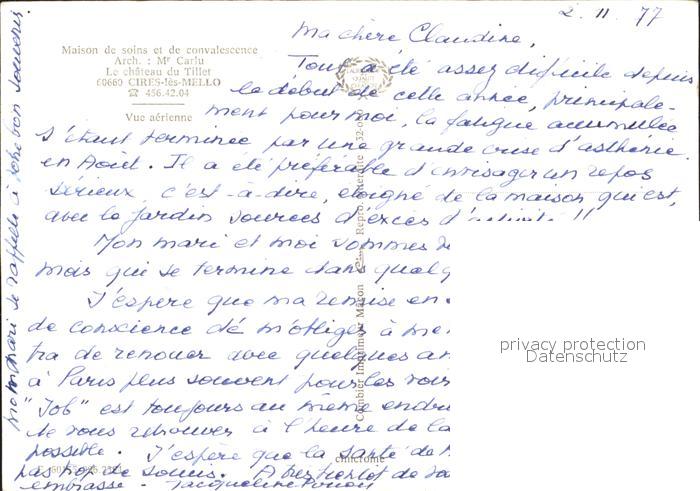 2. 11 77
Ma chère Claudine,
Maison de soins et de convalescence
Arch. : Mr Carlu
Le château du Tillet
60660 CIRES-lès-MELLO
☎ 456.42.04
Vue aérienne
Tout a été assez difficile depuis
le début de cette année, principale-
ment pour moi, la fatigue accumulée
s'étant terminée par une grande crise d'asthénie
en Août. Il a été préférable d'envisager un repos
sérieux, c'est-à-dire, éloigné de la maison qui est,
avec le jardin sources d'excès d'activité !!
Mon mari et moi sommes
mois qui se termine dans quelq
J'espère que ma remise en
de conscience de m'obliger à me
tra de renouer avec quelques am
à Paris plus souvent pour les voir
"Job" est toujours au même endro
te vous retrouver à l'heure de la
possible. J'espère que la santé de
pas trop de soucis. A bientôt de
embrasse - Jacqueline
mon mari se rappelle à votre bon souvenir
Combier Imprimeur Mâcon
Reproduction interdite
cimcrome
privacy protection
Datenschutz